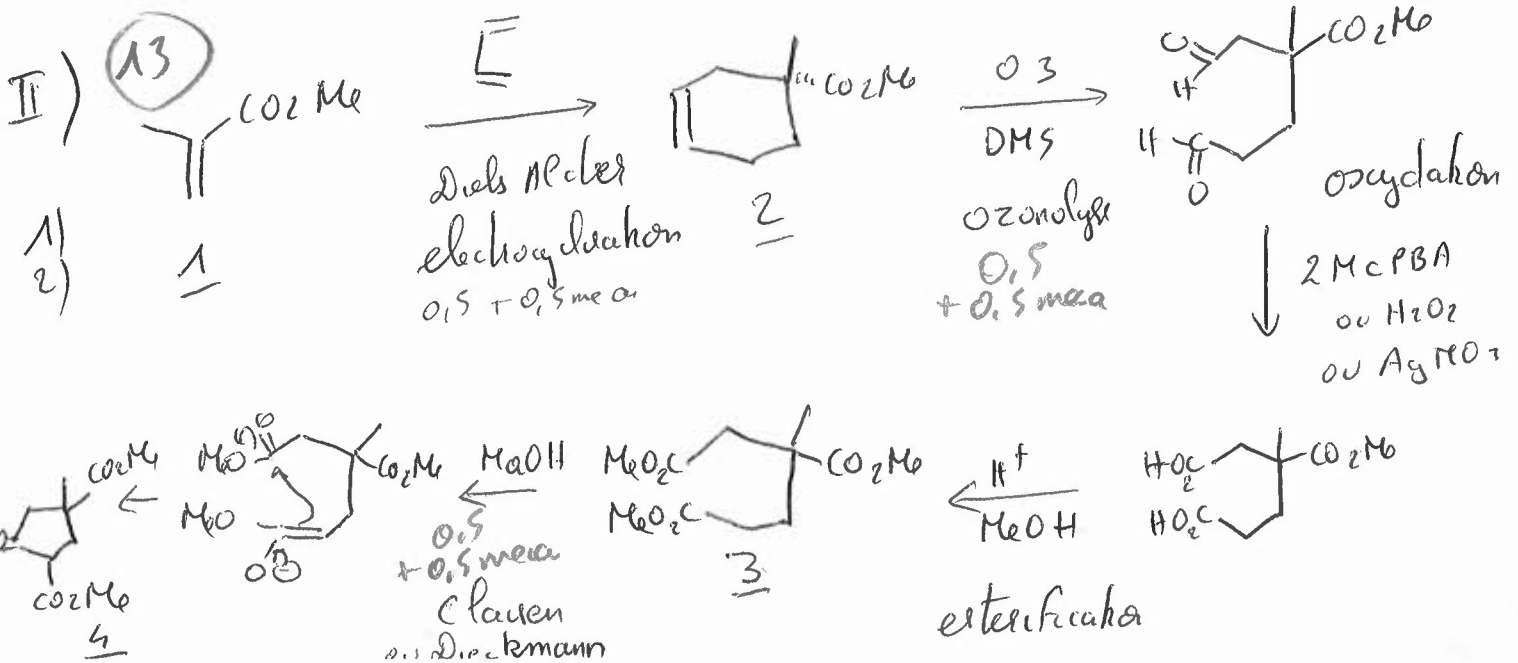 II) 13
CO2Me
1)
2)
1
Diels Alder
electrocyclisation
0,5 + 0,5 meca
CO2Me
2
O3
DMS
ozonolyse
0,5
+ 0,5 meca
O
H
CO2Me
H
O
oxydation
2 McPBA
ou H2O2
ou AgNO3
HO2C
CO2Me
HO2C
H+
MeOH
esterification
MeO2C
CO2Me
MeO2C
3
NaOH
0,5
+ 0,5 meca
Claisen
ou Dieckmann
O
MeO
CO2Me
MeO
O⊖
CO2Me
CO2Me
4